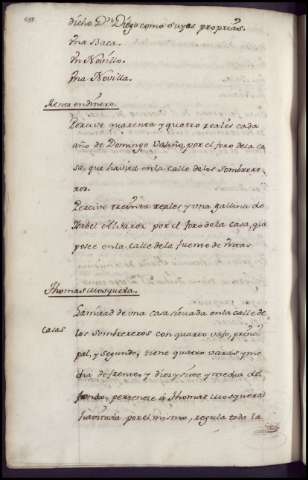 dicho Dn Diego como suyas proprias.
Una Baca.
Un Novillo.
Una Novilla.
Renta en dinero.
Percive quarenta y quatro reales cada
año de Domingo por el foro de la ca
sa, que havita en la calle de los Sombrere-
ros.
Percive treinta reales y una gallina de
por el foro de la casa, q.e
posee en la calle de la fuente de
Thomas Mosquera.
casas
La mitad de una casa situada en la calle de
los Sombrereros con quarto vajo, princi-
pal, y segundo, tiene quatro varas y me
dia de frente, y diez y siete y media de
fondo, pertenece a Thomas Mosquera
havitada por el mismo, regula toda la